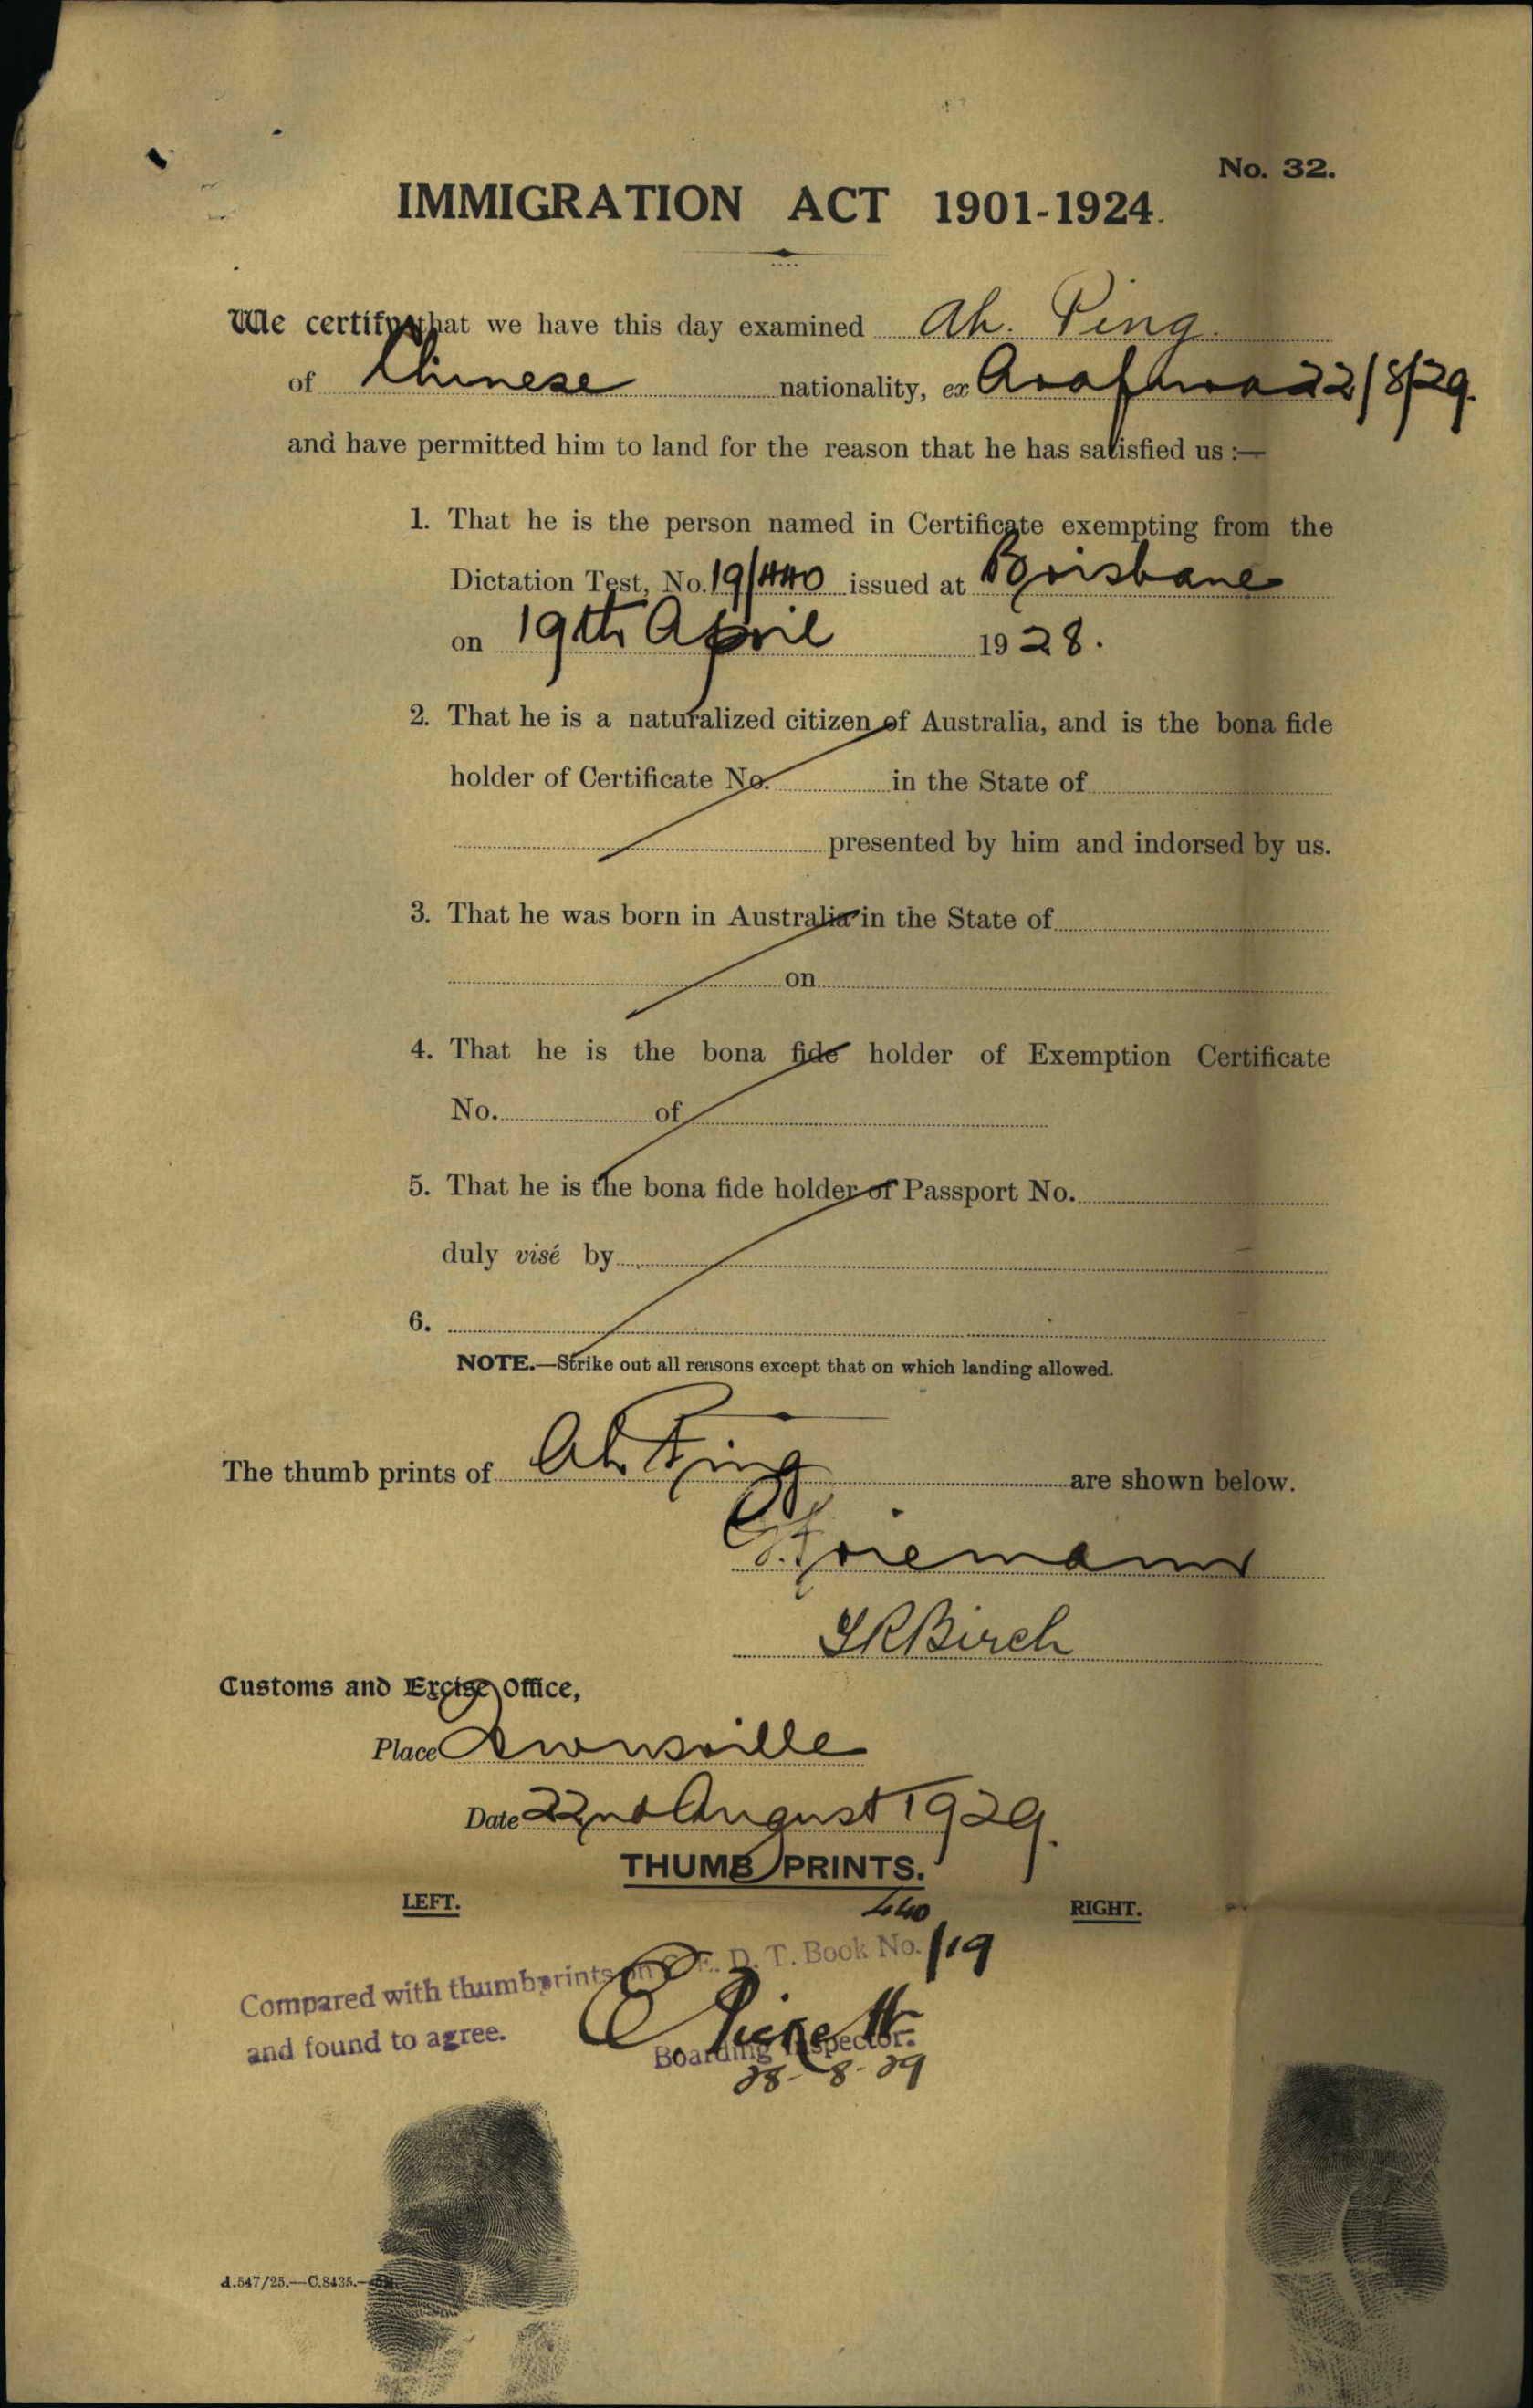 No. 32.
IMMIGRATION ACT 1901-1924.
We certify that we have this day examined Ah. Ping.
of Chinese nationality, ex Arafura 22/8/29.
and have permitted him to land for the reason that he has satisfied us :—
1. That he is the person named in Certificate exempting from the
Dictation Test, No. 19/440 issued at Brisbane
on 19th April 1928.
2. That he is a naturalized citizen of Australia, and is the bona fide
holder of Certificate No. in the State of
presented by him and indorsed by us.
3. That he was born in Australia in the State of
on
4. That he is the bona fide holder of Exemption Certificate
No. of
5. That he is the bona fide holder of Passport No.
duly visé by
6.
NOTE.—Strike out all reasons except that on which landing allowed.
The thumb prints of Ah Ping are shown below.
JRBirch
Customs and Excise Office,
Place Townsville
Date 22nd August 1929.
THUMB PRINTS.
LEFT. 440 RIGHT.
Compared with thumbprints on C.E.D.T. Book No. /19
and found to agree.
Boarding Inspector.
28-8-29